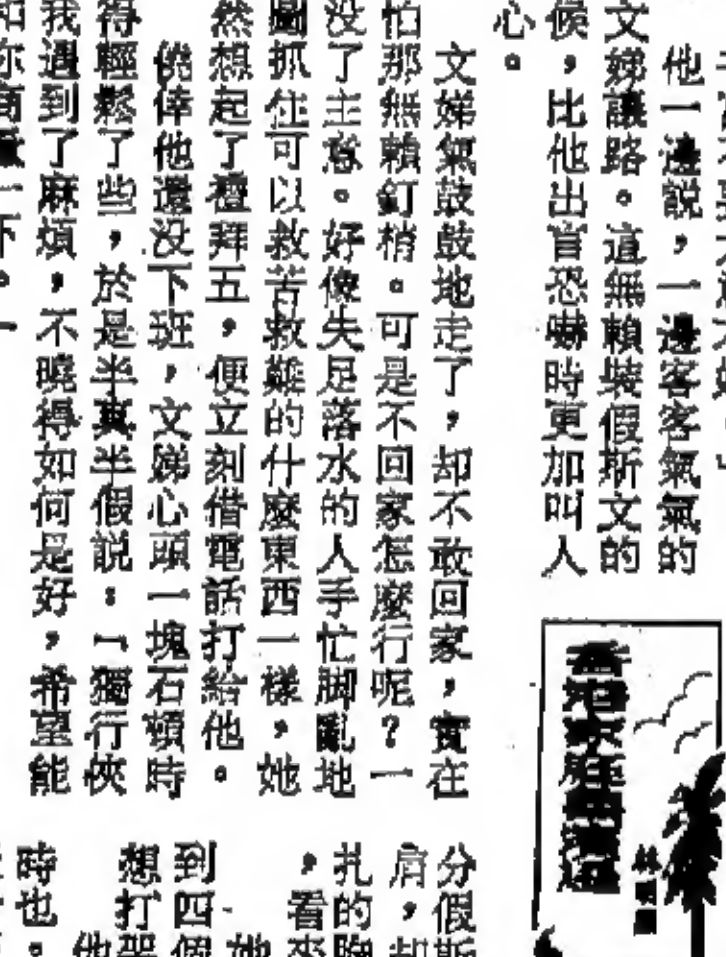 他一邊說，一邊客客氣氣的
文娣讓路。這無賴裝假斯文的
候，比他出言恐嚇時更加叫人
心。
文娣氣鼓鼓地走了，却不敢回家，實在
怕那無賴釘梢。可是不回家怎麼行呢？一
没了主意。好像失足落水的人手忙脚亂地
圖抓住可以救苦救難的什麼東西一樣，她
然想起了禮拜五，便立刻借電話打給他。
僥倖他還没下班，文娣心頭一塊石頓時
得輕鬆了些，於是半真半假説：「獨行俠
我遇到了麻煩，不曉得如何是好，希望能
和你商量一下。」
分假斯
肩，却
扎的胸
，看來
她
到四個
想打架
他
時也